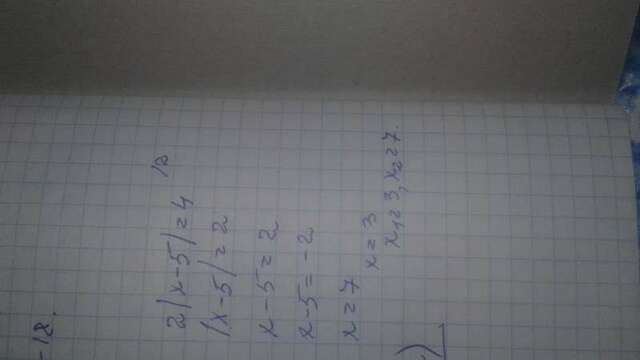 -18.
2|x-5|=4 /2
|x-5|=2
x-5=2
x-5=-2
x=7
x=3
x₁=3, x₂=7.
)